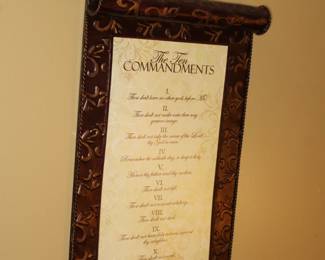 The Ten
COMMANDMENTS
I.
Thou shalt have no other gods before Me
II.
Thou shalt not make unto thee any
graven image
III.
Thou shalt not take the name of the Lord
thy God in vain
IV.
Remember the sabbath day, to keep it holy
V.
Honor thy father and thy mother
VI.
Thou shalt not kill
VII.
Thou shalt not commit adultery
VIII.
Thou shalt not steal
IX.
Thou shalt not bear false witness against
thy neighbor
X.
Thou shalt not